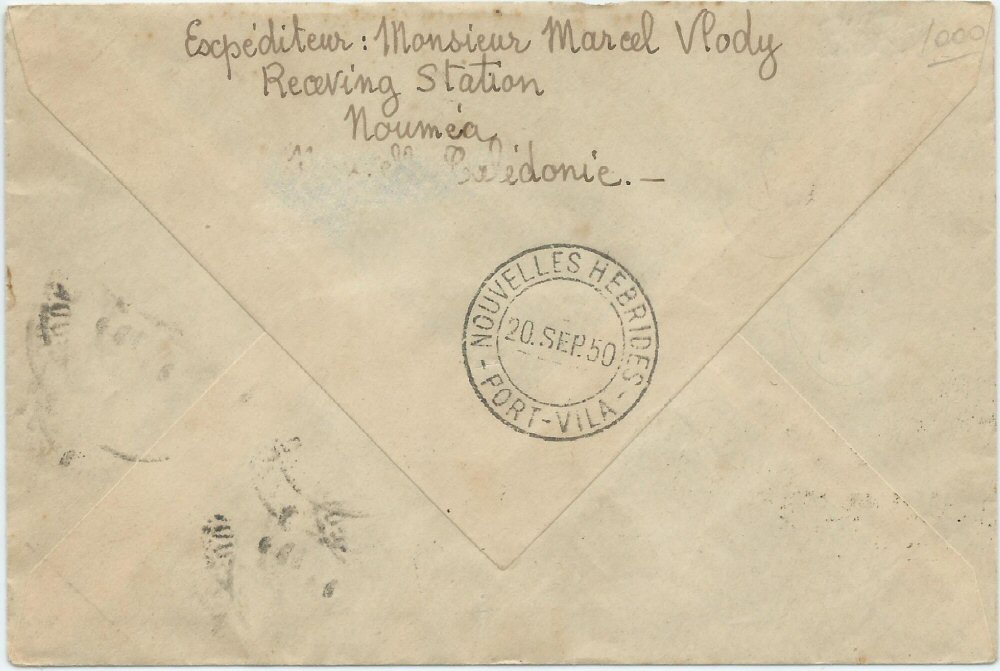 Expéditeur: Monsieur Marcel Vlody
1000
Receving Station
Nouméa
Nouvelle Calédonie. —
NOUVELLES HEBRIDES
20. SEP. 50
- PORT-VILA -